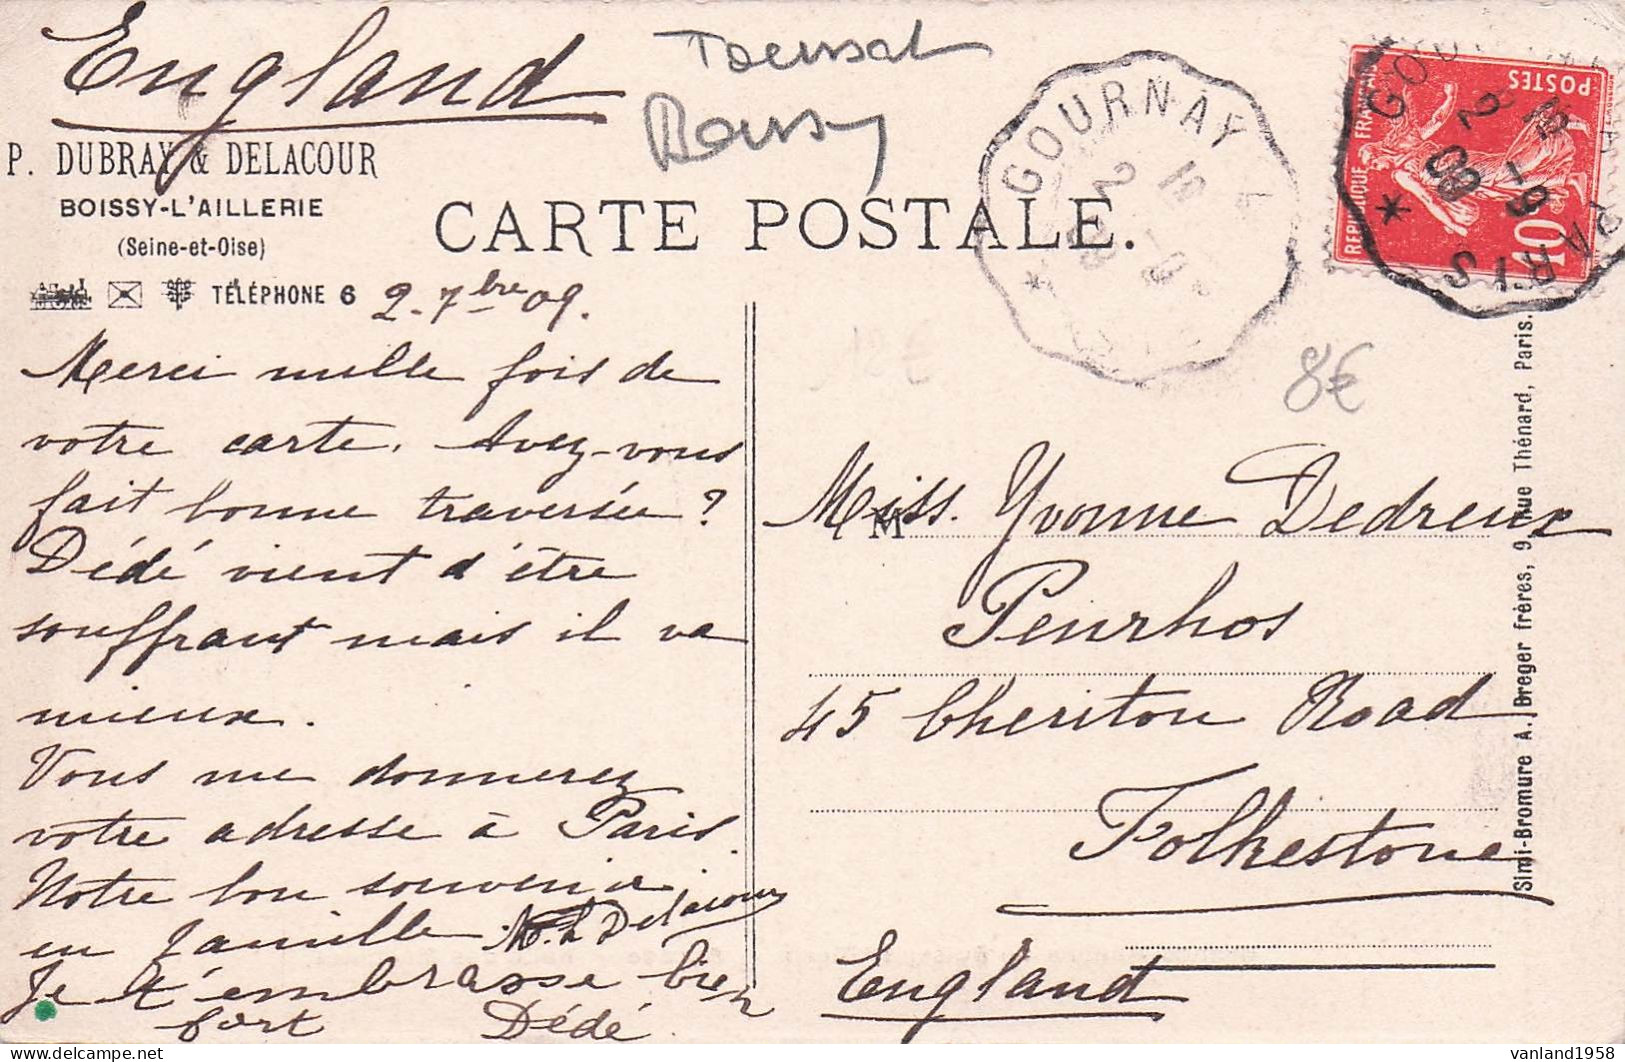 England
P. DUBRAY & DELACOUR
BOISSY-L'AILLERIE
(Seine-et-Oise)
TÉLÉPHONE 6
2. 7bre 09.
Merci mille fois de
votre carte. Avez-vous
fait bonne traversée ?
Dédé vient d'être
souffrant mais il va
mieux.
Vous me donnerez
votre adresse à Paris.
Notre bon souvenir
en famille. Delacour
Je t'embrasse bien
fort Dédé.
CARTE POSTALE.
GOURNAY
2 -9
09
8€
REPUBLIQUE FRANÇAISE
POSTES
10
GOURNAY A PARIS
2 -9
09
M
Miss. Yvonne Dedreux
Penrhos
45 Cheriton Road
Folkestone
England
Simi-Bromure A. Breger frères, 9, rue Thénard, Paris.
vanland1958